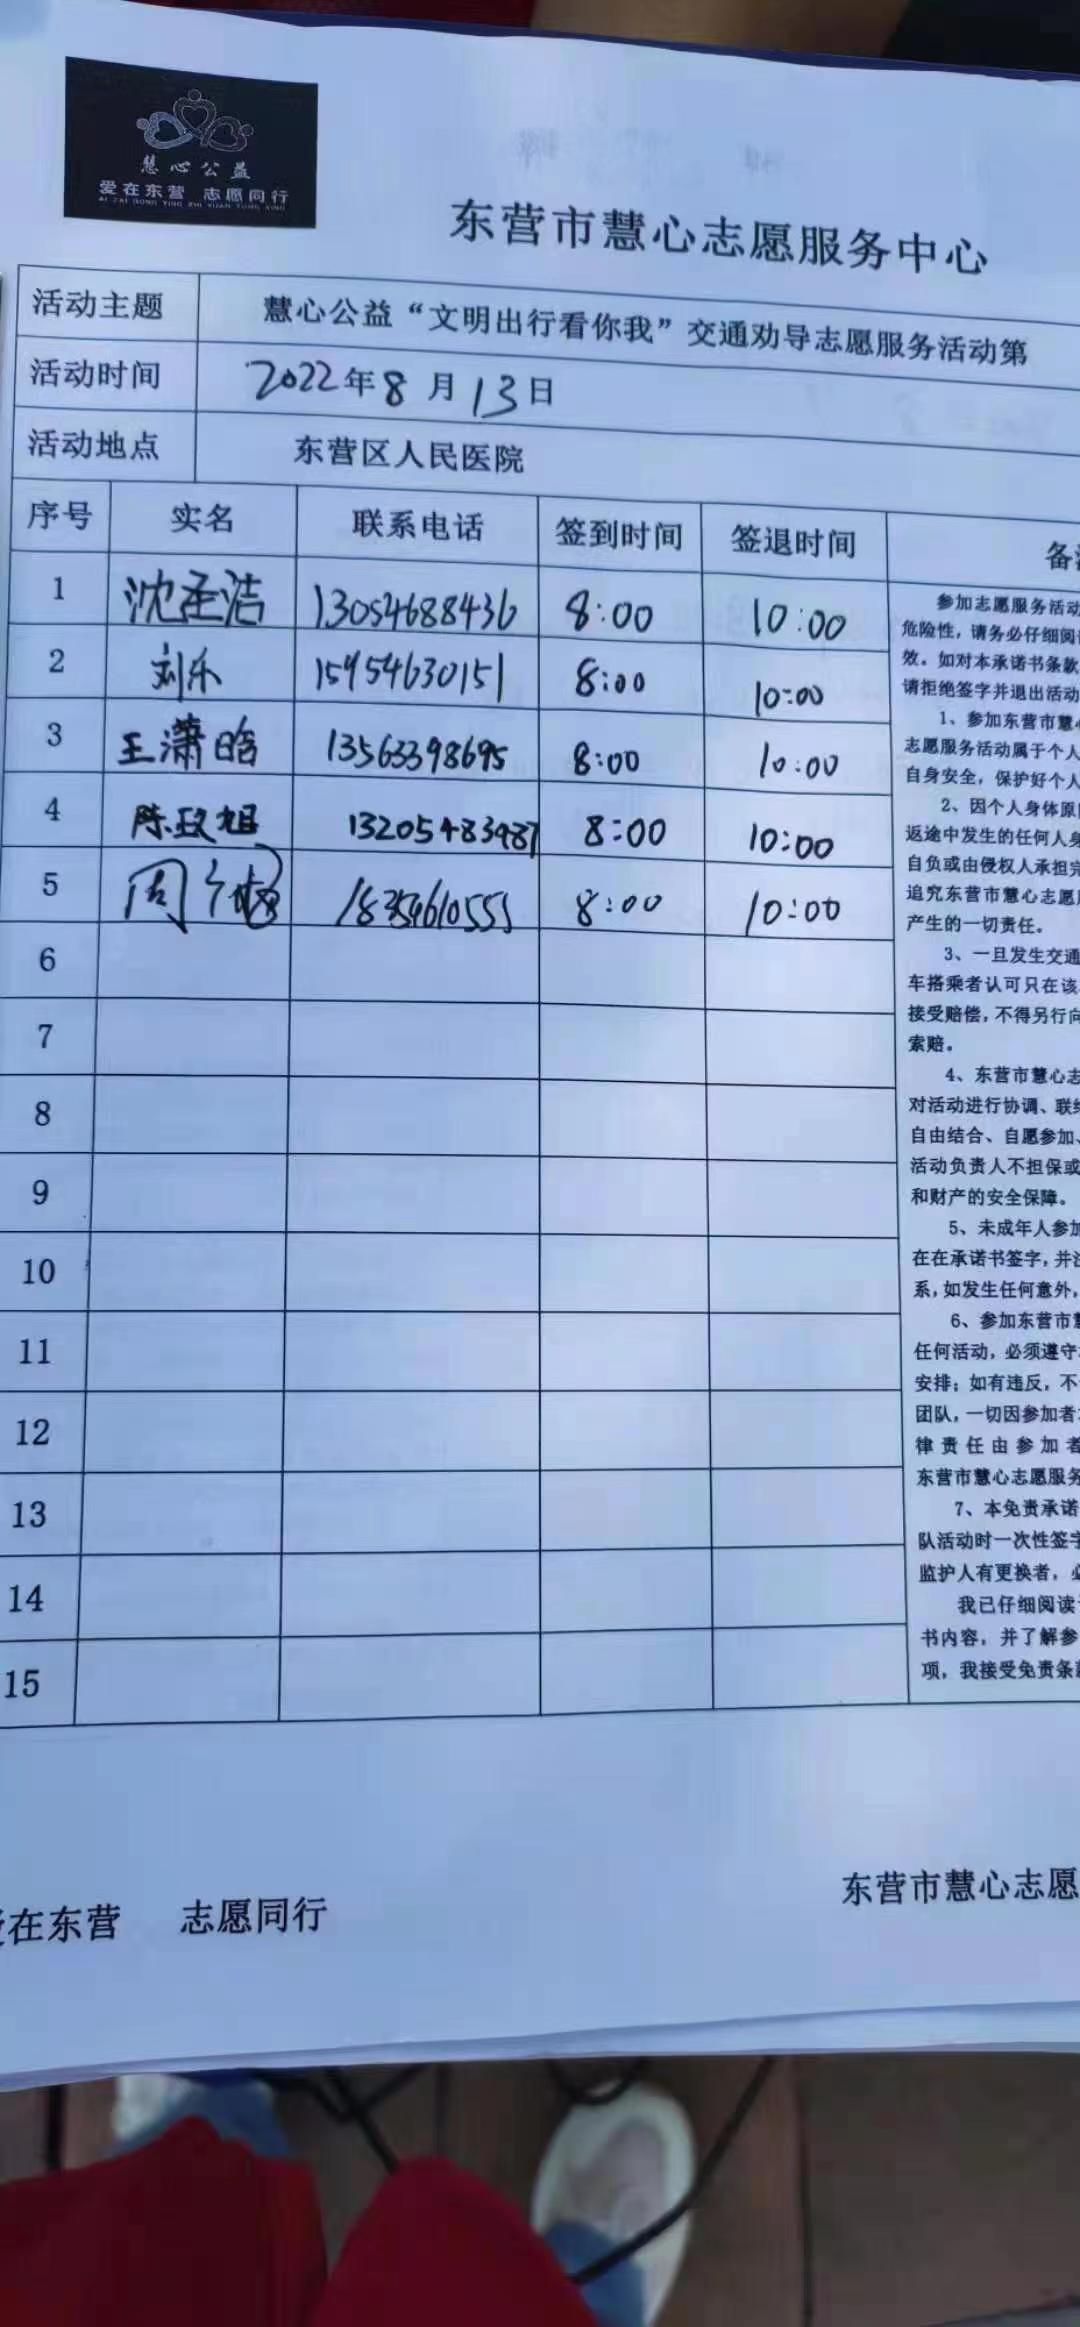 慧心公益
爱在东营 志愿同行
AI ZAI DONG YING ZHI YUAN TONG XING
东营市慧心志愿服务中心
活动主题 慧心公益“文明出行看你我”交通劝导志愿服务活动第
活动时间 2022年8月13日
活动地点 东营区人民医院
序号 实名 联系电话 签到时间 签退时间 备
1 沈圣洁 13054688436 8:00 10:00
2 刘乐 15954630151 8:00 10:00
3 王潇晗 13563398695 8:00 10:00
4 陈政旭 13205483987 8:00 10:00
5 周 8:00 10:00
6
7
8
9
10
11
12
13
14
15
参加志愿服务活动
危险性，请务必仔细阅
效。如对本承诺书条款
请拒绝签字并退出活动
1、参加东营市慧
志愿服务活动属于个人
自身安全，保护好个人
2、因个人身体原
返途中发生的任何人身
自负或由侵权人承担完
追究东营市慧心志愿
产生的一切责任。
3、一旦发生交通
车搭乘者认可只在该
接受赔偿，不得另行向
索赔。
4、东营市慧心志
对活动进行协调、联
自由结合、自愿参加、
活动负责人不担保或
和财产的安全保障。
5、未成年人参加
在在承诺书签字，并
系，如发生任何意外，
6、参加东营市
任何活动，必须遵守
安排；如有违反，不
团队，一切因参加者
律责任由参加者
东营市慧心志愿服务
7、本免责承诺
队活动时一次性签字
监护人有更换者，必
我已仔细阅读
书内容，并了解参
项，我接受免责条
在东营 志愿同行
东营市慧心志愿